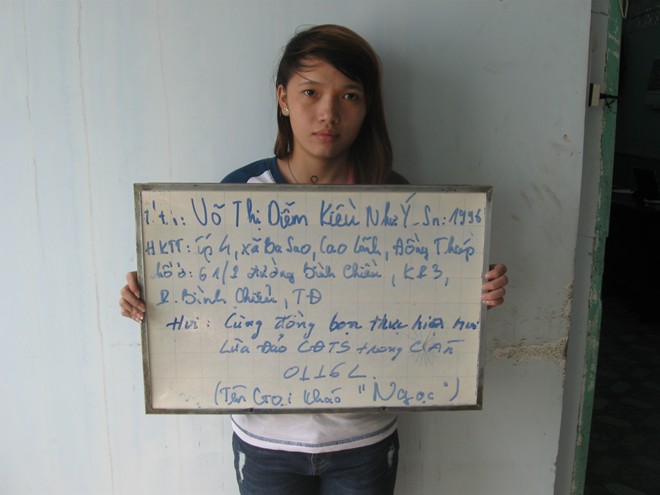 Võ Thị Diễm Kiều Như Ý - Sn: 1996
HKTT: ấp 4, xã Ba Sao, Cao Lãnh, Đồng Tháp
61/2 đường Bình Chiểu, KP3,
P. Bình Chiểu, TĐ
Hvi: Cùng đồng bọn thực hiện Hvi
Lừa Đảo CĐTS trong CAn
(Tên Gọi Khác "Ngọc")